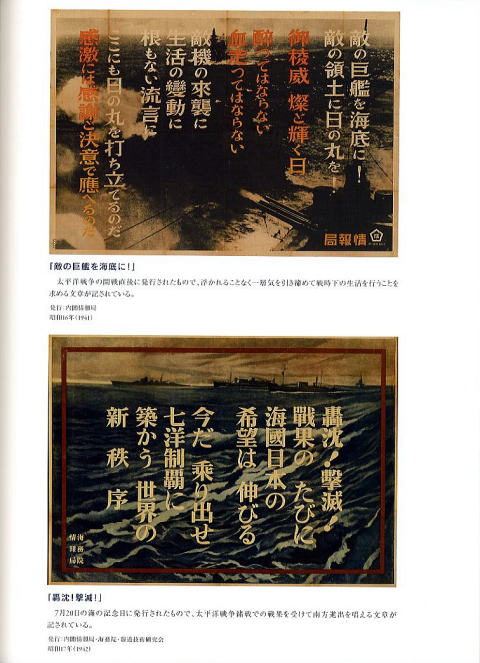 敵の巨艦を海底に!
敵の領土に日の丸を!
御稜威 燦と輝く日
醉つてはならない
血走つてはならない
敵機の來襲に
生活の變動に
根もない流言に
ここにも日の丸を打ち立てるのだ
感激には感謝と決意で應へるのだ
情報局
「敵の巨艦を海底に!」
太平洋戦争の開戦直後に発行されたもので、浮かれることなく一層気を引き締めて戦時下の生活を行うことを
求める文章が記されている。
発行:内閣情報局
昭和16年(1941)
轟沈!擊滅!
戰果の たびに
海國日本の
希望は 伸びる
今だ 乘り出せ
七洋制覇に
築かう 世界の
新秩序
海務院
情報局
「轟沈!撃滅!」
7月20日の海の記念日に発行されたもので、太平洋戦争緒戦での戦果を受けて南方進出を唱える文章が
記されている。
発行:内閣情報局・海務院・報道技術研究会
昭和17年(1942)